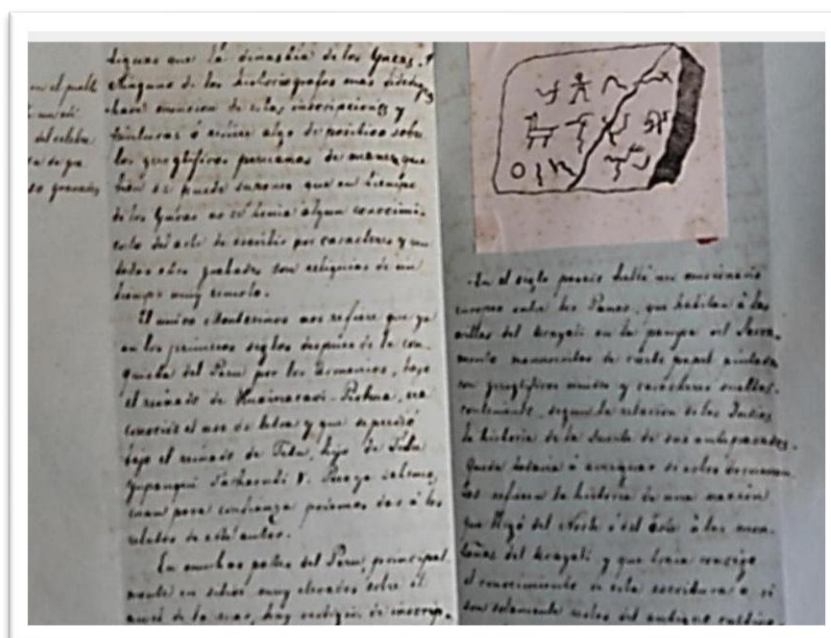 en el pueb
del celebre
so grandes
siguas que la dinastia de los Yncas.
Ninguno de los historiografos mas
hace mencion de estas inscripciones y
pinturas ó refiere algo de positivo sobre
los geroglificos peruanos de manera que
bien se puede suponer que en tiempo
de los Yncas no se tenia algun conocimi-
ento del arte de escribir por caracteres y que
todos estos grabados son reliquias de un
tiempo muy remoto.
El unico Montesinos nos refiere que ya
en los primeros siglos despues de la con-
quista del Peru por los Armenios, bajo
el reinado de Huainacavi-Pishua, era
conocido el uso de letras y que se perdió
bajo el reinado de Titu, hijo de Titu
Yupanqui Pachacuti V. Pero ya sabemos
cuan poca confianza podemos dar á los
relatos de este autor.
En muchas partes del Peru, principal-
mente en sitios muy elevados sobre el
nivel de la mar, hay vestigios de inscrip-
En el siglo pasado halló un misionario
europeo entre los Panos, que habitan á las
orillas del Ucayali en la pampa del Sacra-
mento manuscritos de cierto papel pintados
con geroglificos unidos y caracteres sueltos
conteniendo, segun la relacion de los Indios
la historia de la suerte de sus antepasados.
Queda todavia á averiguar si estos documen-
tos refieren la historia de una nacion
que llegó del Norte ó del Este á las mon-
tañas del Ucayali y que traia consigo
el conocimiento de esta escritura ó si
son solamente restos del antiguo